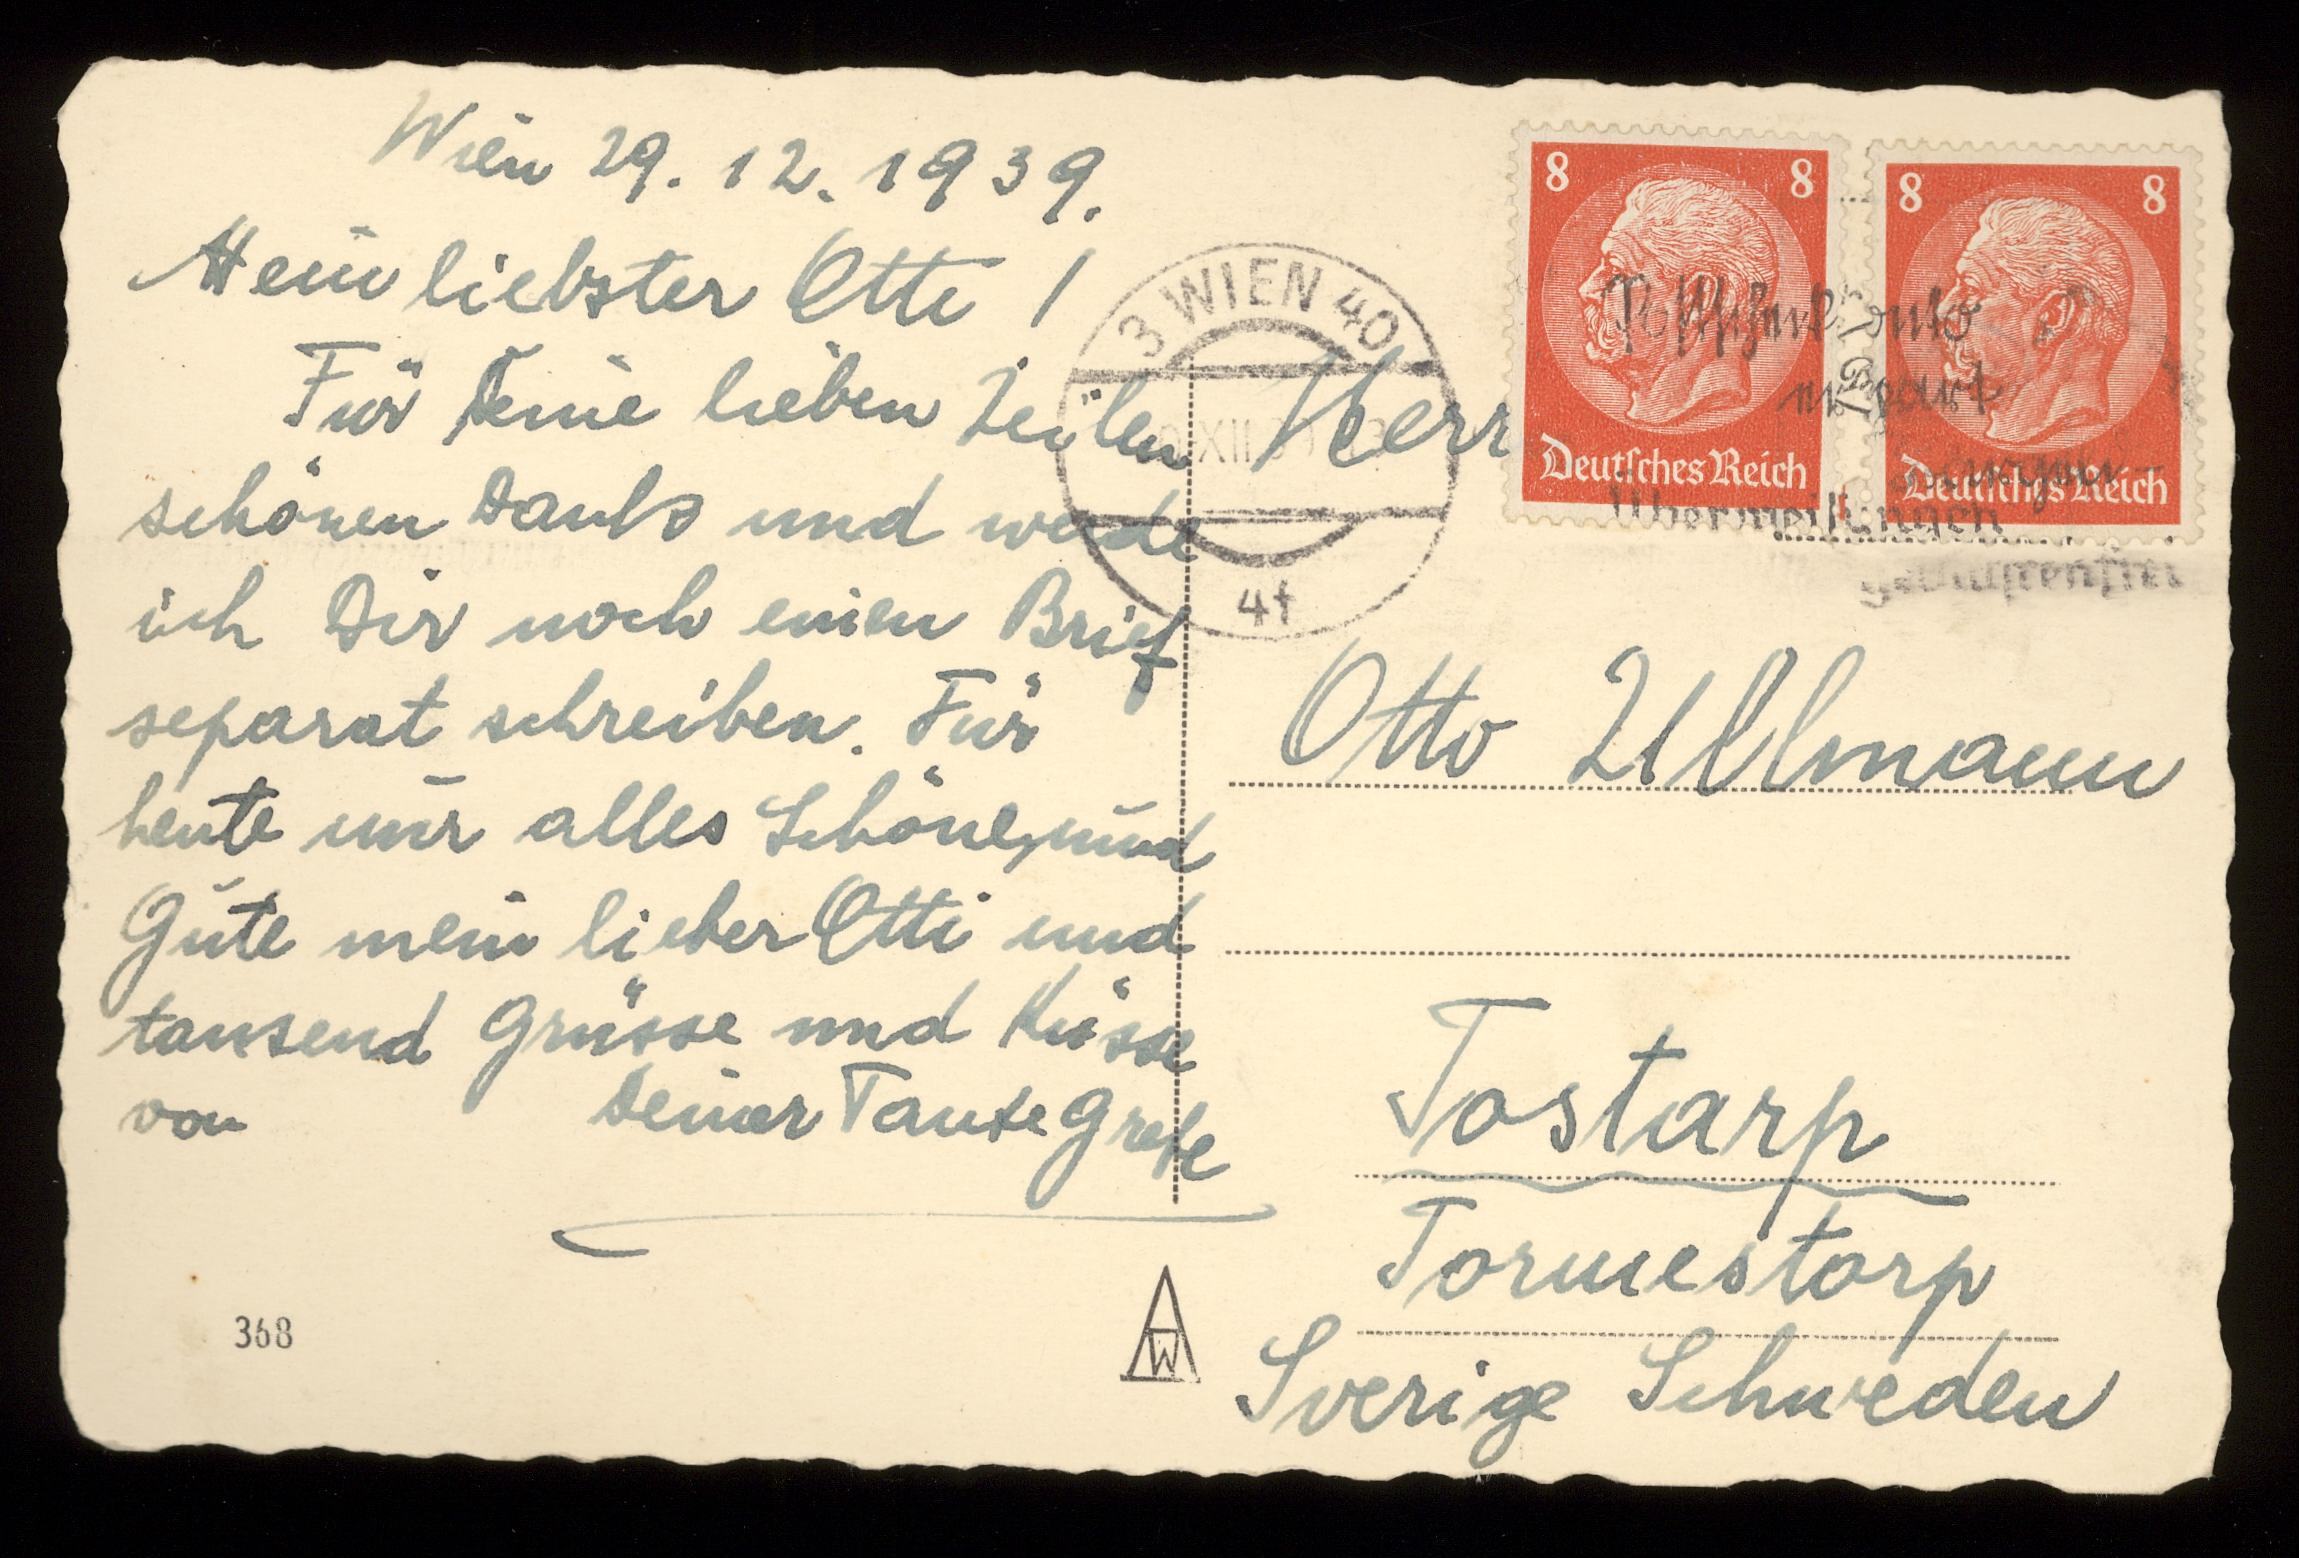 Wien 29. 12. 1939.
Mein liebster Otti !
Für Deine lieben Zeilen
schönen Dank und werde
ich Dir noch einen Brief
separat schreiben. Für
heute nur alles Schöne, und
Gute mein lieber Otti und
tausend Grüsse und Küsse
von Deiner Tante Grete
368
3 WIEN 40
XII
4f
8 8
Deutsches Reich
8 8
Deutsches Reich
Postscheckkonto
erspart
Überweisungen
gebührenfrei
Herr
Otto Ullmann
Tostarp
Tormestorp
Sverige Schweden
AW